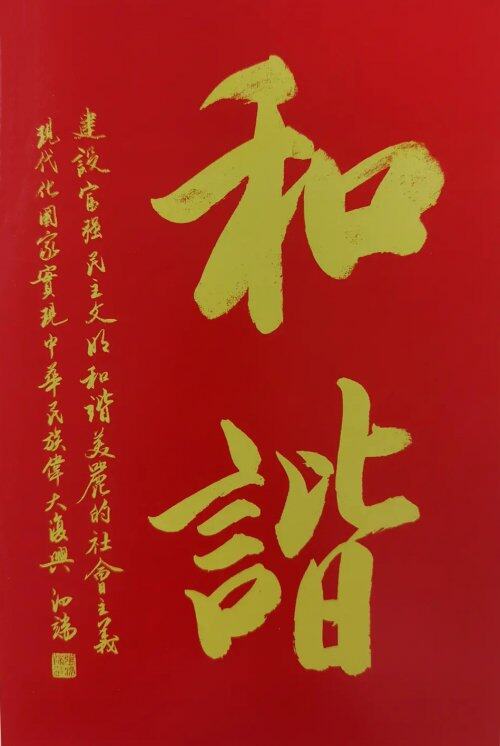 和諧
建設富强民主文明和諧美麗的社會主義
現代化國家實現中華民族偉大復興